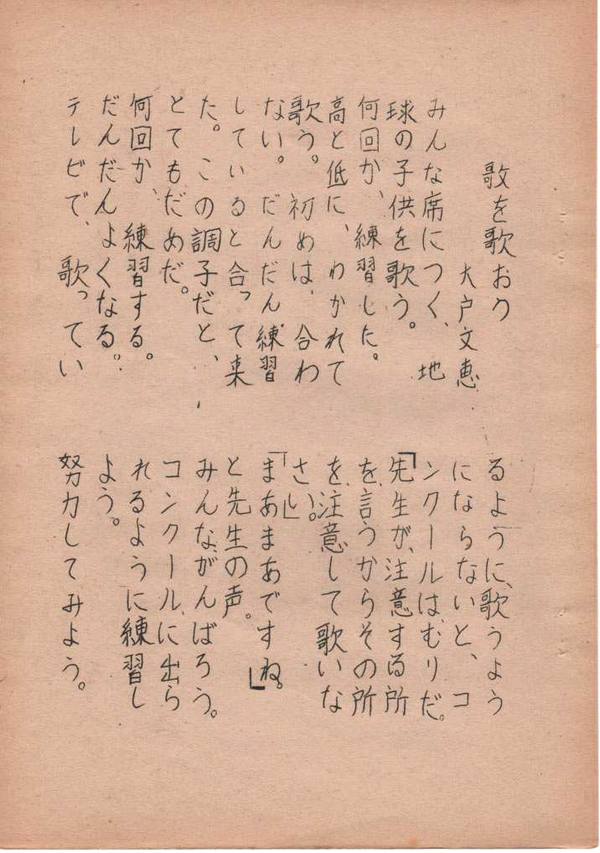 歌を歌おり
大戸文恵
みんな席につく、地
球の子供を歌う。
何回か、練習した。
高と低に、わかれて
歌う。初めは、合わ
ない。だんだん練習
していると合って来
た。この調子だと、
とてもだめだ。
何回か、練習する。
だんだんよくなる。
テレビで、歌ってい
るように、歌うよう
にならないと、コ
ンクールは、むりだ。
「先生が、注意する所
を、言うからその所
を、注意して歌いな
さい。」
「まあまあですね。」
と先生の声。
みんながんばろう。
コンクールに出ら
れるように練習し
よう。
努力してみよう。